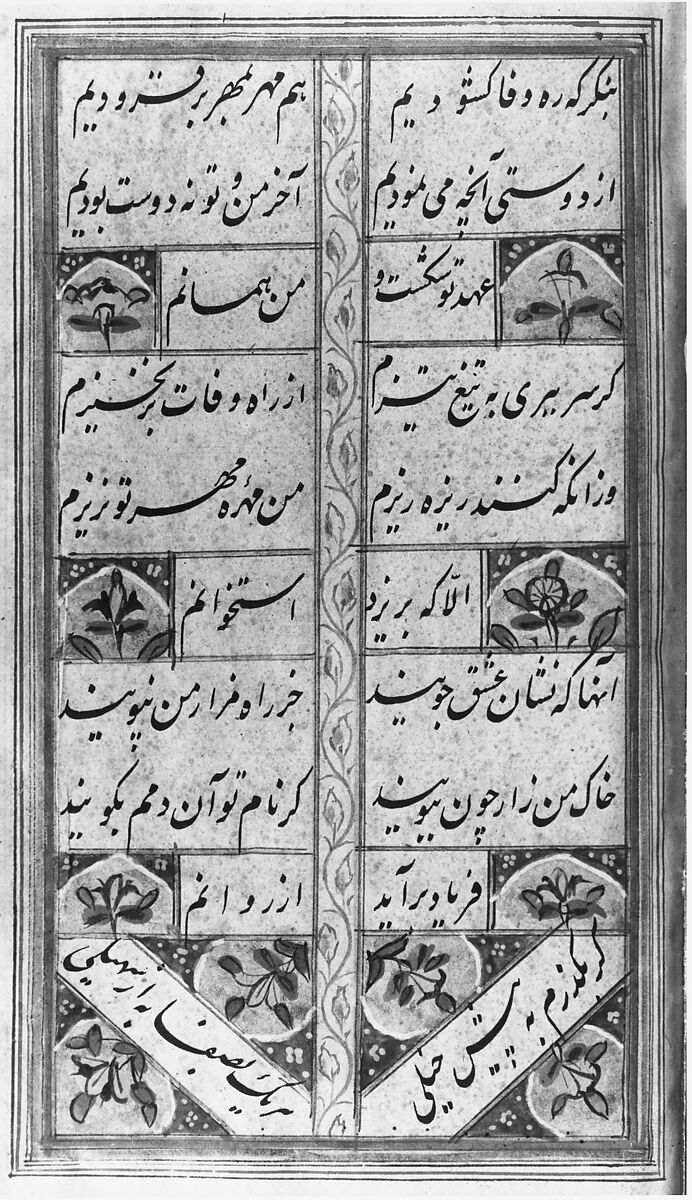 بنکر که ره وفا کشودیم هم مهر بمهر بر فزودیم
از دوستی آنچه می نمودیم آخر من و تو نه دوست بودیم
عهد تو شکست و من همانم
کر سر ببری به تیغ تیزم از راه وفات بر نخیزم
وزانکه کنند ریزه ریزم من مهره مهر تو نریزم
الّا که بریزد استخوانم
آنها که نشان عشق جویند جز راه مزار من نپویند
خاک من زار چون ببویند کر نام تو آن دمم بکویند
فریاد برآید از روانم
کر بگذرم به پیش خیلی
هر یک بصفا به از سهیلی